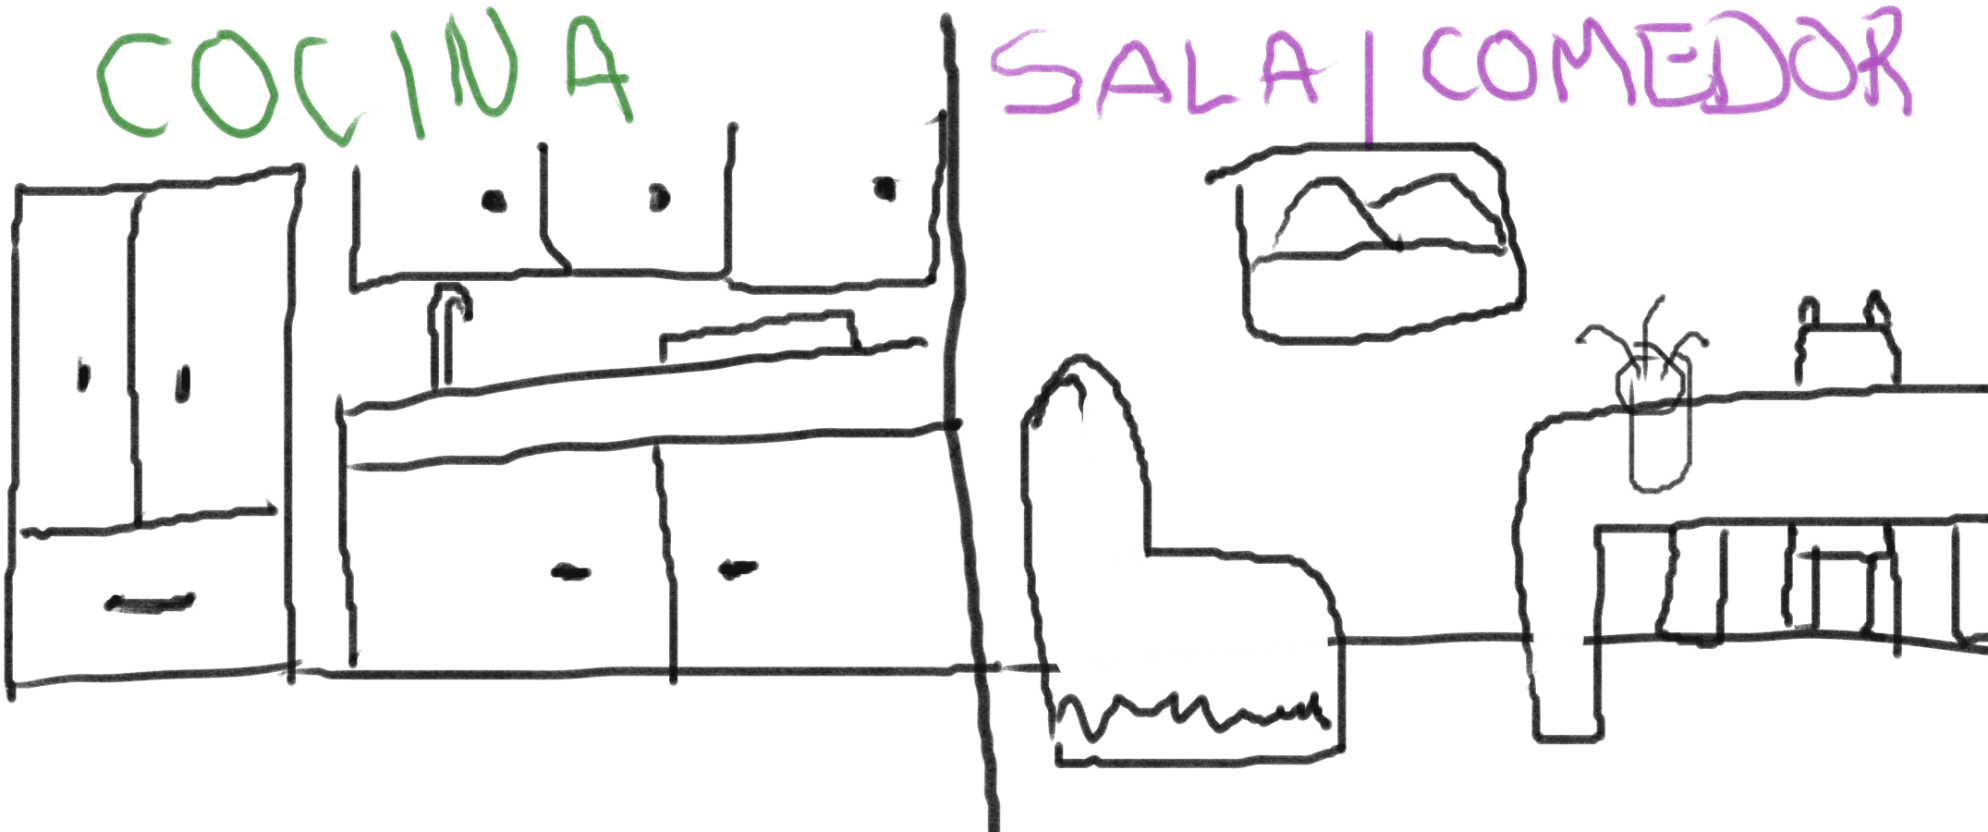 COCINA
SALA | COMEDOR